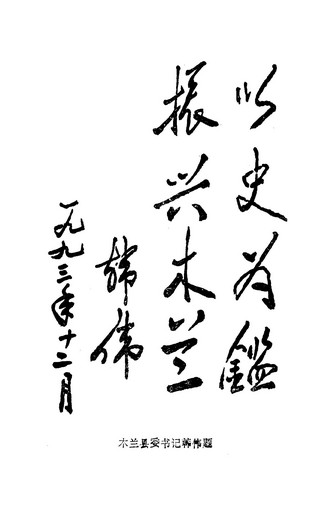 以史为鑑
振兴木兰
韩伟
一九九三年十二月
木兰县委书记韩伟题